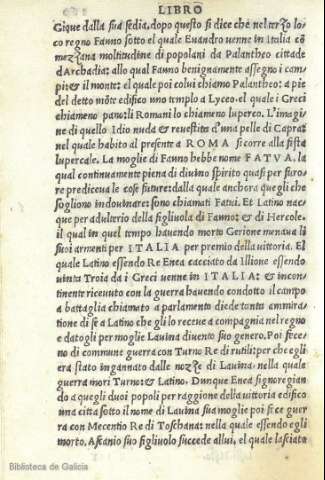 LIBRO
Gique dalla sua sedia, dopo questo si dice che nel terzo lo
co regno Fauno sotto el quale Euandro uenne in Italia cō
mezzana moltitudine di popolani da Palantheo cittade
d'Archadia: allo qual Fauno benignamente assegno i cam
pi & il monte: el quale poi colui chiamo Palantheo: a pie
del detto mōte edifico uno templo a Lyceo. el quale i Greci
chiameno pano: li Romani lo chiameno luperco. L'imagi
ne di quello Idio nuda & reuestita d'una pelle di Capra:
nel quale habito al presente a ROMA si corre alla fista
lupercale. La moglie di Fauno hebbe nome FATVA. la
qual continuamente piena di diuino spirito quasi per furo
re prediceua le cose future: dalla quale anchora quegli che
sogliono indouinare: sono chiamati Fatui. Et Latino nac
que per adulterio della figliuola di Fauno: & di Hercole.
il qual in quel tempo hauendo morto Gerione menaua li
suoi armenti per ITALIA per premio della uittoria. El
quale Latino essendo Re Enea cacciato da Illione essendo
uinta Troia da i Greci uenne in ITALIA: & incon
tinente riceuuto con la guerra hauendo condotto il campo
a battaglia chiamato a parlamento diede tanta ammira
tione di se a Latino che gli lo receue a compagnia nel regno
e datogli per moglie Lauina diuento suo genero. Poi fece
no di commune guerra con Turno Re di rutili: per che egli
era stato ingannato dalle nozze di Lauina. nella quale
guerra mori Turno: & Latino. Dunque Enea signoregian
do a quegli duoi popoli per raggione della uittoria edifico
una citta sotto il nome di Lauina sua moglie poi fice guer
ra con Mecentio Re di Toschana: nella quale essendo egli
morto, Ascanio suo figliuolo succede allui, el quale lasciata
Biblioteca de Galicia